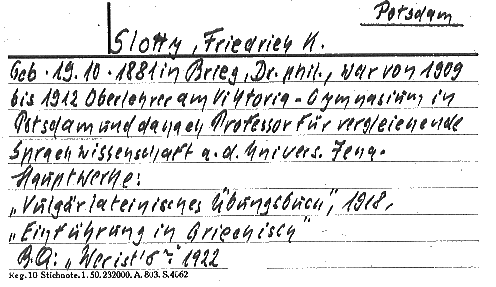 Potsdam
Slotty, Friedrich K.
Geb. 19.10.1881 in Brieg, Dr. phil., war von 1909
bis 1912 Oberlehrer am Viktoria-Gymnasium in
Potsdam und danach Professor für vergleichende
Sprachwissenschaft a.d. Univers. Jena.
Hauptwerke:
„Vulgärlateinisches Übungsbuch", 1918,
„Einführung in Griechisch"
B.A: „Wer ist's?" 1922
Reg. 10 Stichnote. 1. 50. 232000. A. 803. S. 4062